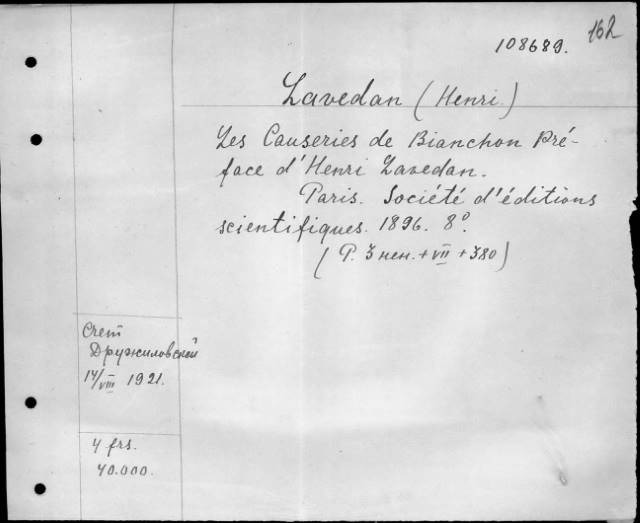 108689.
162
Lavedan (Henri.)
Les Causeries de Bianchon Pré-
face d'Henri Lavedan.
Paris. Société d'éditions
scientifiques. 1896. 8º.
(P. 3 нен. + VII + 380)
Счет
Дружиловской
14/VIII 1921.
4 frs.
40.000.